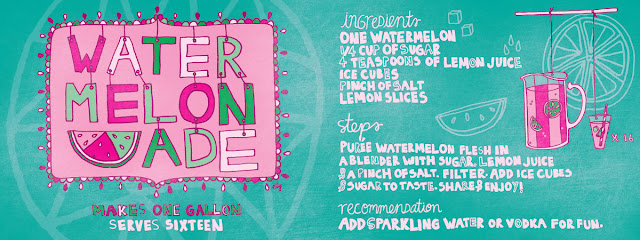 WATER
MELON
ADE
MAKES ONE GALLON
SERVES SIXTEEN
ingredients
ONE WATERMELON
1/4 CUP OF SUGAR
4 TEASPOONS OF LEMON JUICE
ICE CUBES
PINCH OF SALT
LEMON SLICES
steps
PURÉE WATERMELON FLESH IN
A BLENDER WITH SUGAR, LEMON JUICE
& A PINCH OF SALT. FILTER. ADD ICE CUBES
& SUGAR TO TASTE. SHARE & ENJOY!
recommendation
ADD SPARKLING WATER OR VODKA FOR FUN.
X 16